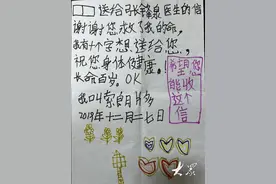 送给可长锋泉医生的信
谢谢您救了我的命,
我有十个字想送给您,
祝您身体健康。
长命百岁。OK
我叫索朗片多
2018年十二月二七日
希望您
能收
这个
信